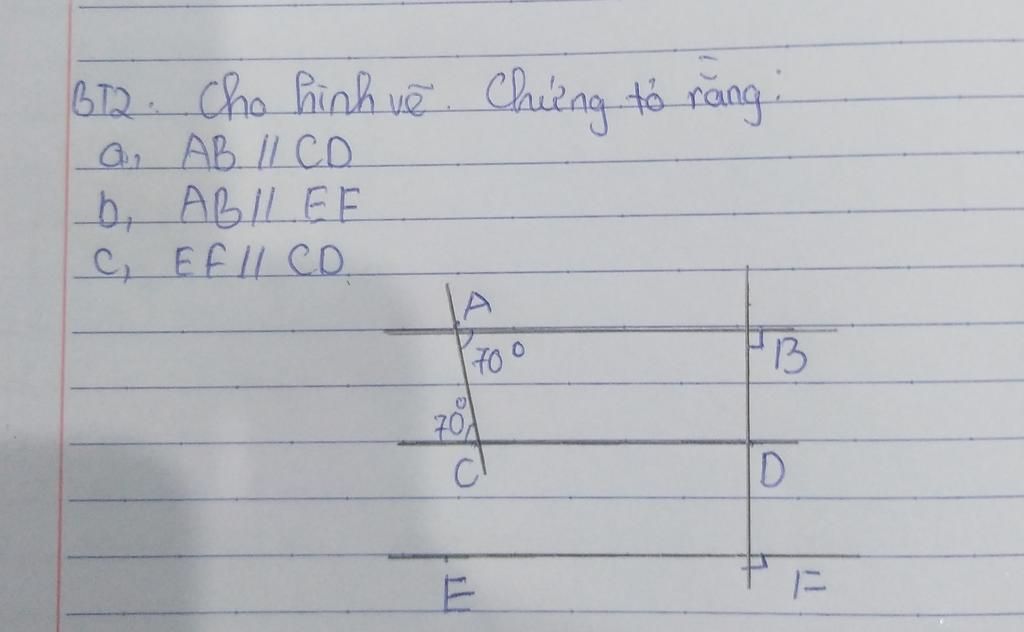 BT2. Cho hình vẽ. Chứng tỏ rằng:
a, AB // CD
b, AB // EF
c, EF // CD
A
70°
B
70°
C
D
E
F